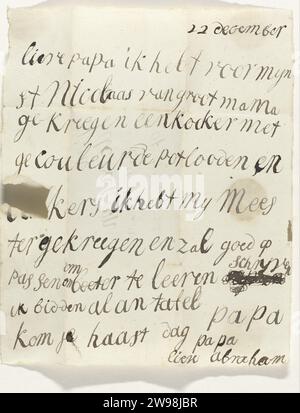 22 december
lieve papa ik heb voor myn
st Nicolaas van groot mama
ge kreegen een kocker met
ge couleurde potlooden en
kers ik heb my Mees
ter gekreegen en zal goed op
passen om beeter te leeren schryven
ik bidden al an tafel
papa
kom je haast dag papa
lieve abraham
alamy
Image ID: 2W98JBR
www.alamy.com